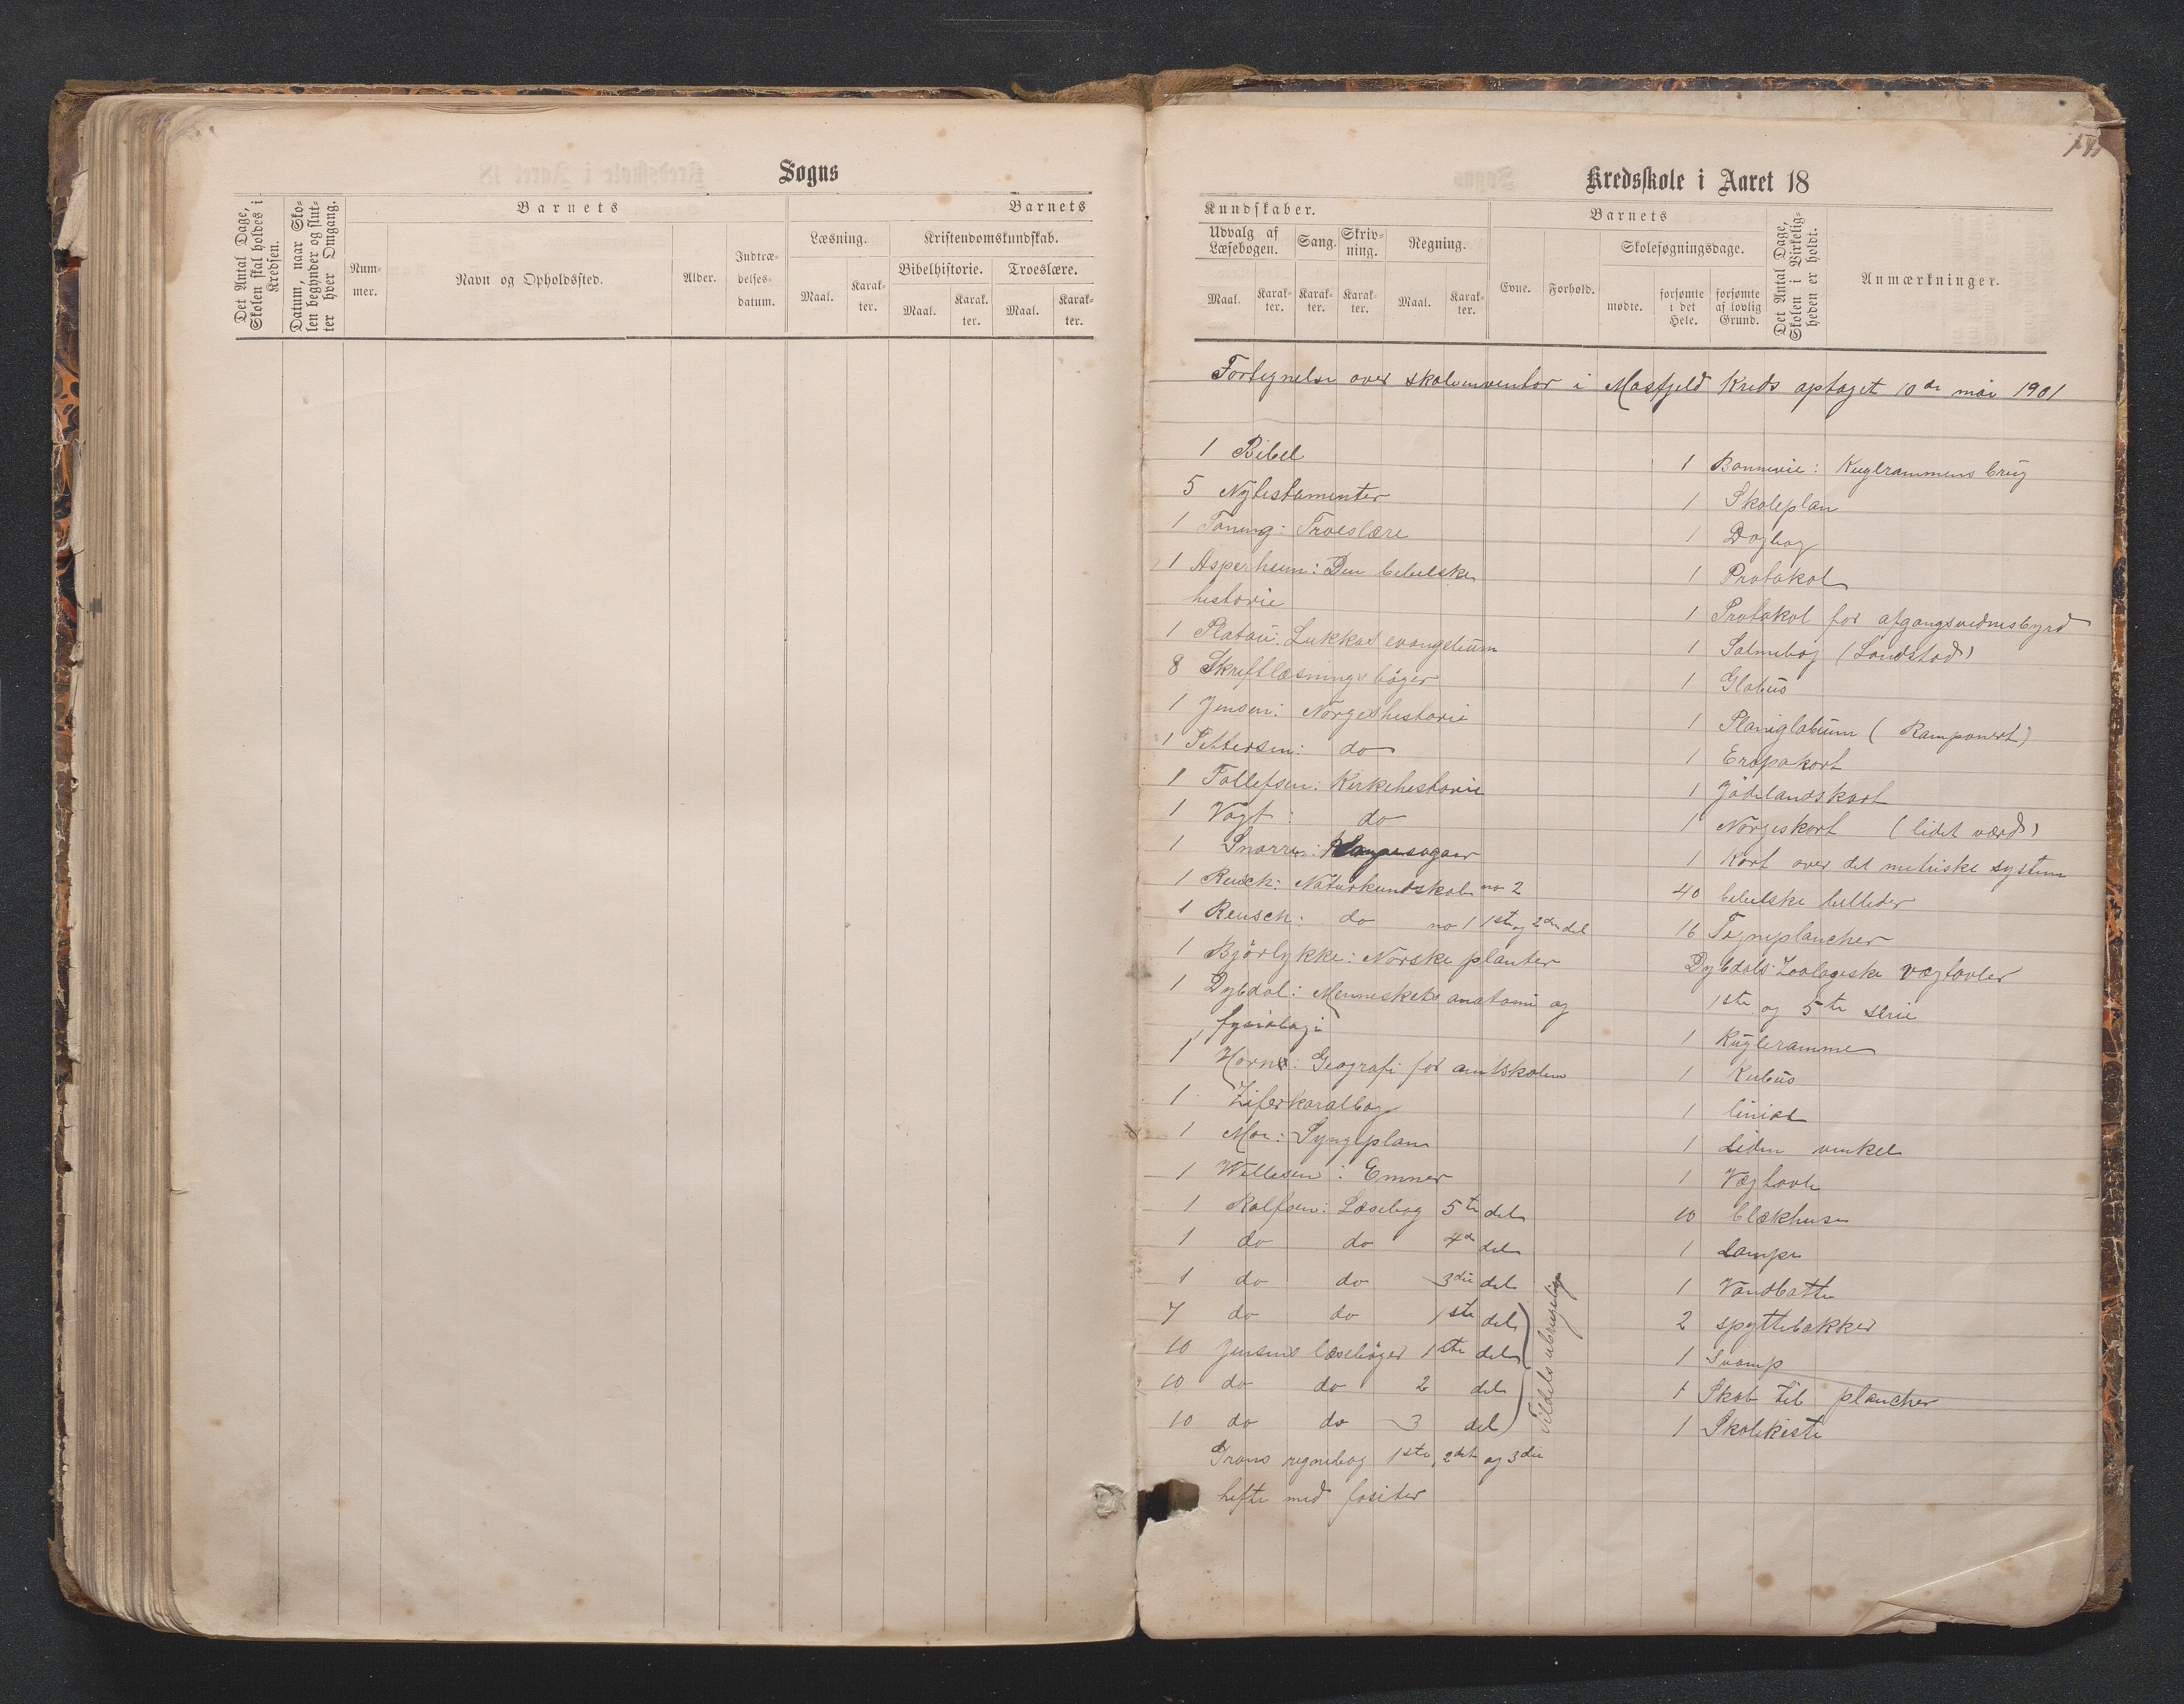 Sogns
Det Antal Dage, Skolen skal holdes i Kredsen.
Datum, naar Skolen begynder og slutter hver Omgang.
Barnets
Barnets
Nummer.
Navn og Opholdssted.
Alder.
Indtrædelsesdatum.
Læsning.
Kristendomskundskab.
Maal.
Karakter.
Bibelhistorie.
Troeslære.
Maal.
Karakter.
Maal.
Karakter.
Kredsskole i Aaret 18
Kundskaber.
Barnets
Udvalg af Læsebogen.
Sang.
Skrivning.
Regning.
Maal.
Karakter.
Karakter.
Karakter.
Maal.
Karakter.
Evne.
Forhold.
Skolesøgningsdage.
mødte.
forsømte i det Hele.
forsømte af lovlig Grund.
Det Antal Dage, Skolen i Virkeligheden er holdt.
Anmærkninger.
Fortegnelse over skoleinventar i Masfjeld Kreds optaget 10de mai 1901
1 Bibel
5 Nytestamenter
1 Troeslære
1 Asperheim: Den bibelske
historie
1 Platou: Lukkas evangelium
8 Skriftlæsningsbøger
1 Jensen: Norgeshistorie
1 Pettersen: do
1 Tallefsen: Kirkehistorie
1 Vogt: do
1 Snorre: Kongesagaer
1 Reusch: Naturkundskab no 2
1 Reusch: do no 1 1ste og 2den del
1 Bjørlykke: Norske planter
1 Dybdal: Menneskets anatomi og
fysiologi
1 Horn: Geografi for amtskolen
1 Ziferkoralbog
1 Moe: Syngeplan
1 Willesen: Emner
1 Rolfsen: Læsebog 5te del
1 do do 4de del
1 do do 3die del
7 do do 1ste del
10 Jensens læsebøger 1ste del
10 do do 2 del
10 do do 3 del
Tildels ubrugelige
regnebog 1ste, 2det og 3die
hefte med fasiter
1 Bonnevie: Kuglrammens brug
1 Skoleplan
1 Dagbog
1 Protokol
1 Protokol for afgangsvidnesbyrd
1 Salmebog (Landstad)
1 Globus
1 Planiglobium (Ramponert)
1 Eropakort
1 Jødelandskart
1 Norgeskort (lidet værd)
1 Kart over det metriske system
40 bibelske billeder
16 Tegneplancher
Dybdals Zoologiske vægtavler
1ste og 5te serie
1 Kugleramme
1 Kubus
1 linial
1 Liden vinkel
1 Vægtavle
10 blækhuse
1 Lampe
1 Vandbøtte
2 spyttebakker
1 Svamp
1 Skab til plancher
1 Skolekiste